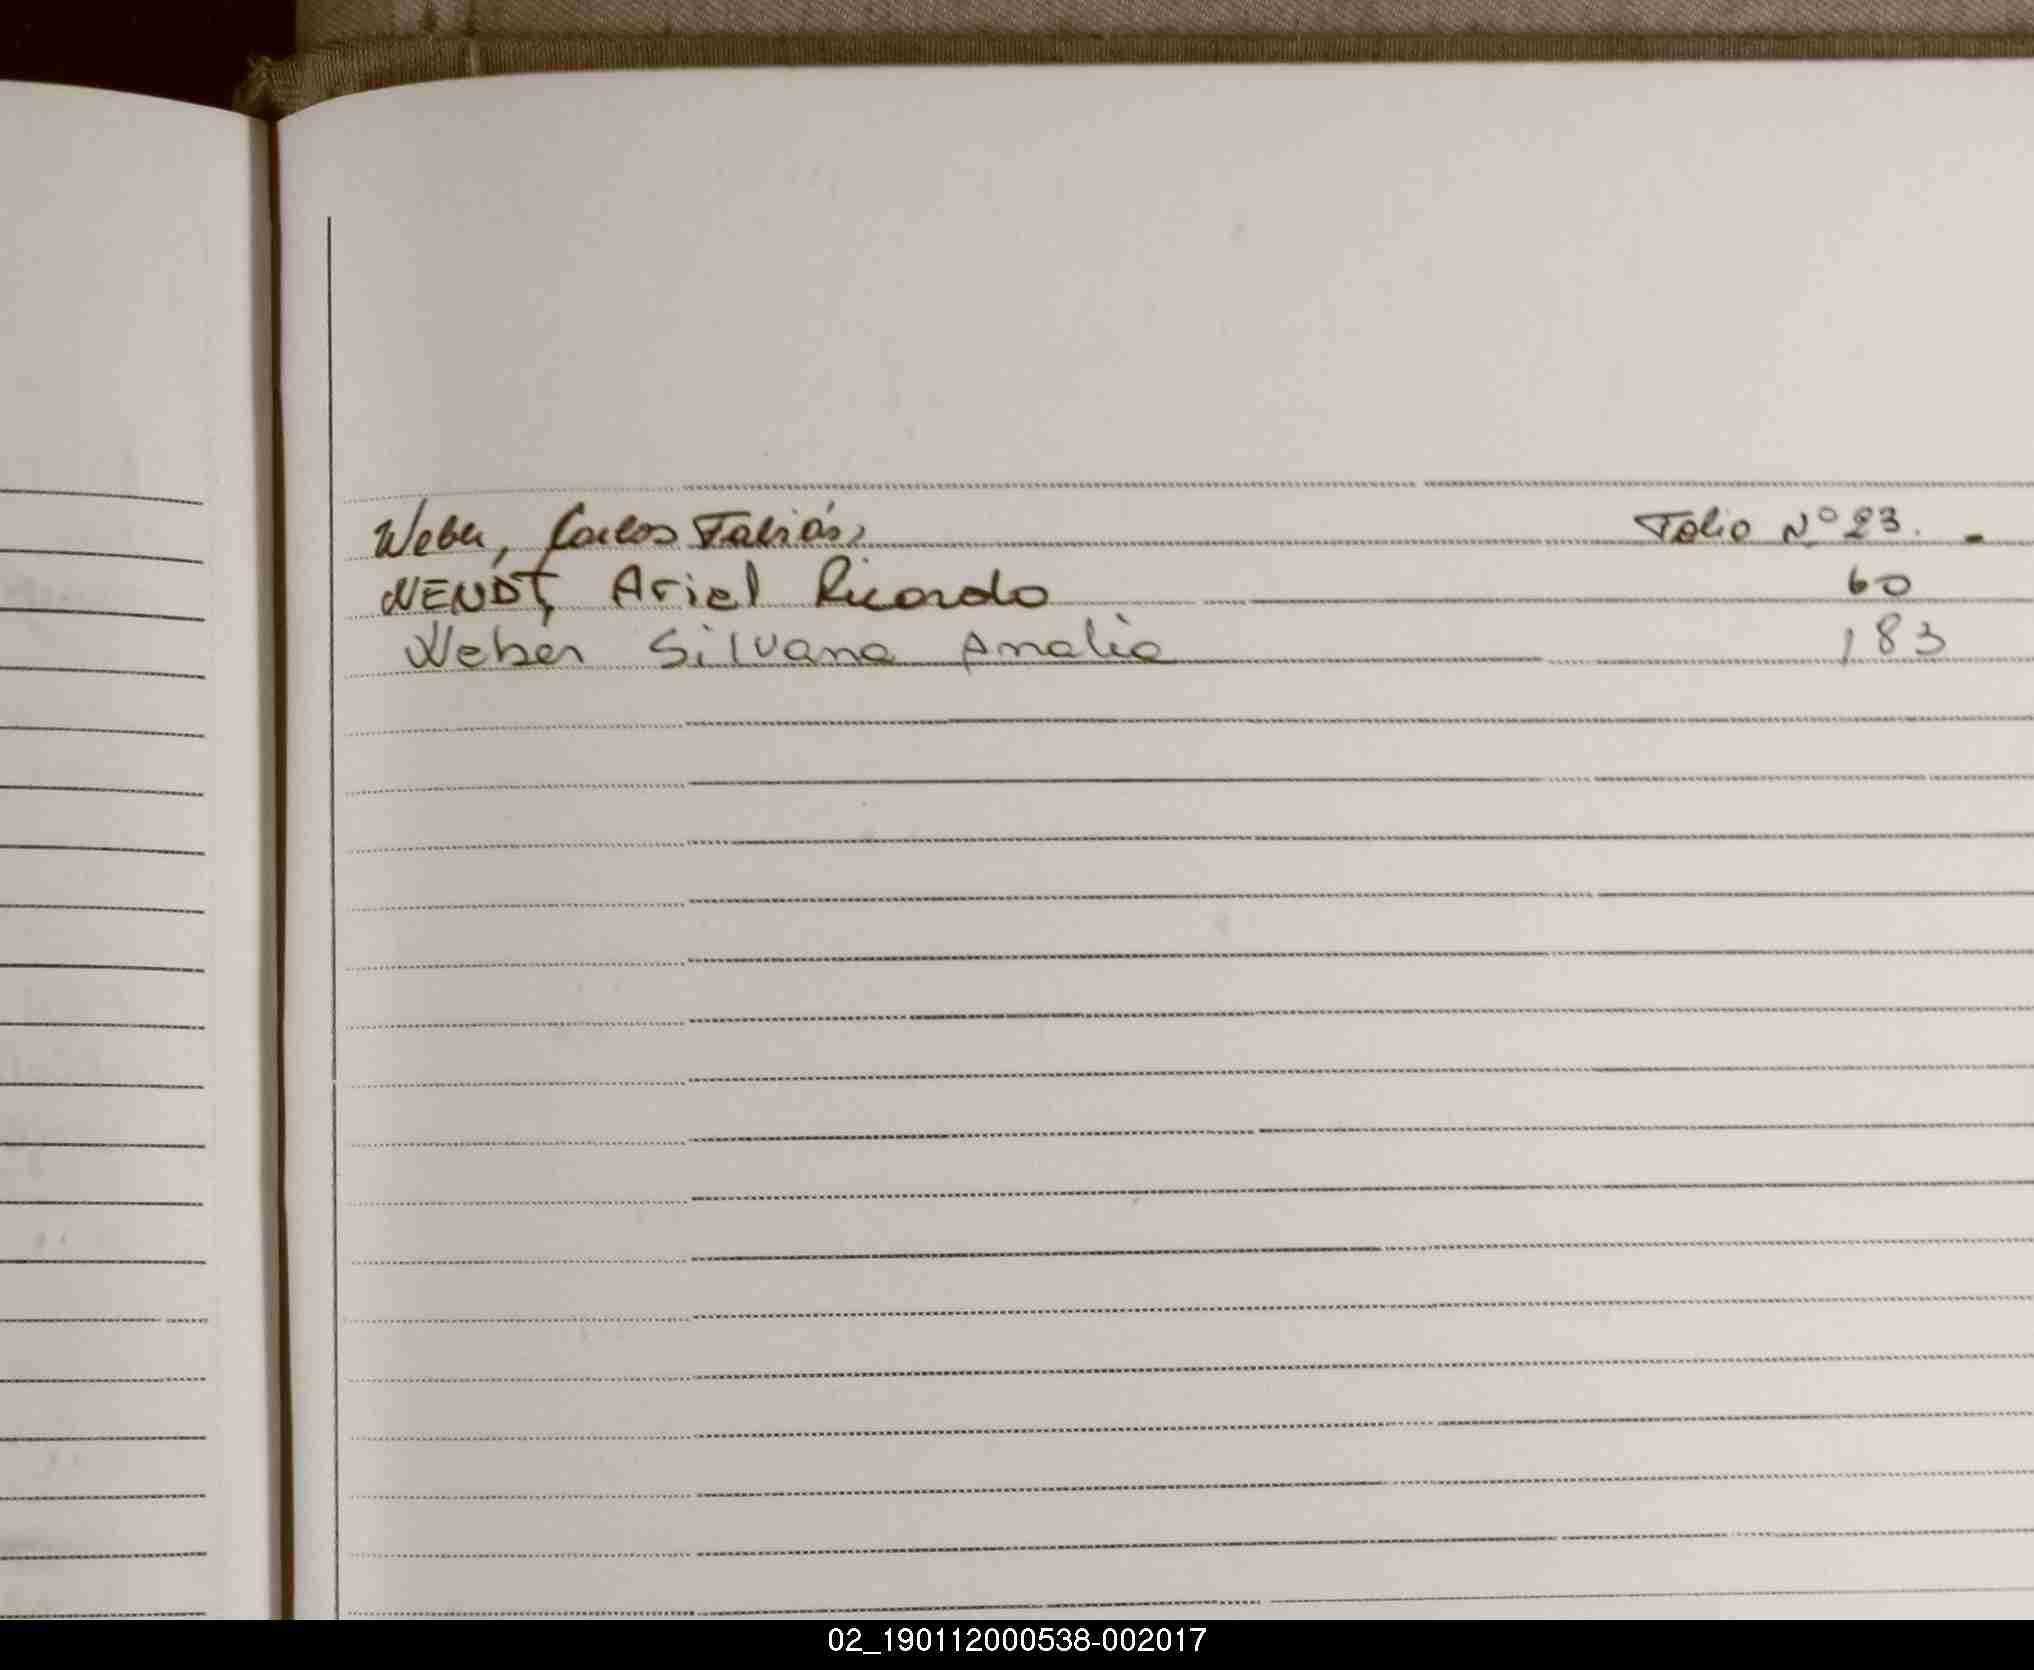 Weber, Carlos Fabián, Folio Nº 23. -
WENDT, Ariel Ricardo 60
Weber Silvana Analia 183
02_190112000538-002017